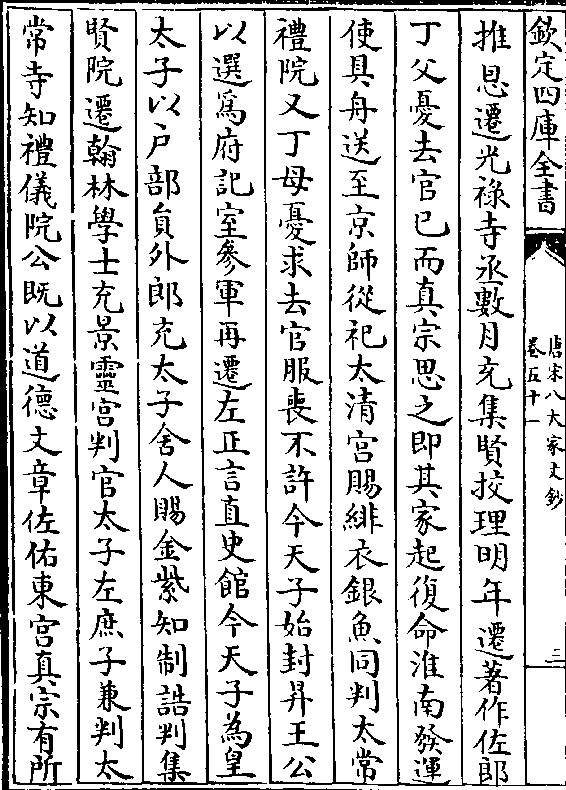 欽定四庫全書
唐宋八大家文鈔
卷五十一
三
推恩遷光祿寺丞數月充集賢挍理明年遷著作佐郎
丁父憂去官已而真宗思之即其家起復命淮南發運
使具舟送至京師從祀太清宮賜緋衣銀魚同判太常
禮院又丁母憂求去官服喪不許今天子始封昇王公
以選爲府記室參軍再遷左正言直史館今天子為皇
太子以戶部負外郎充太子舍人賜金紫知制誥判集
賢院遷翰林學士充景靈宮判官太子左庶子兼判太
常寺知禮儀院公既以道德文章佐佑東宮真宗有所